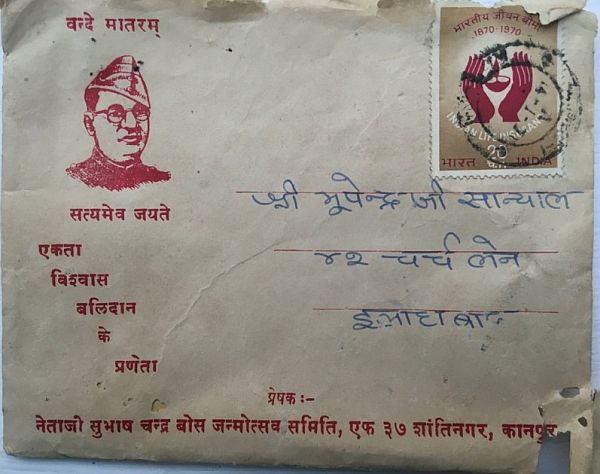 वन्दे मातरम्
भारतीय जीवन बीमा
1870-1970
INDIAN LIFE INSURANCE
20
भारत INDIA
सत्यमेव जयते
एकता
विश्वास
बलिदान
के
प्रणेता
श्री भूपेन्द्र जी सान्याल
४२ चर्च लेन
इलाहाबाद
प्रेषक :-
नेताजी सुभाष चन्द्र बोस जन्मोत्सव समिति, एफ ३७ शांतिनगर, कानपुर